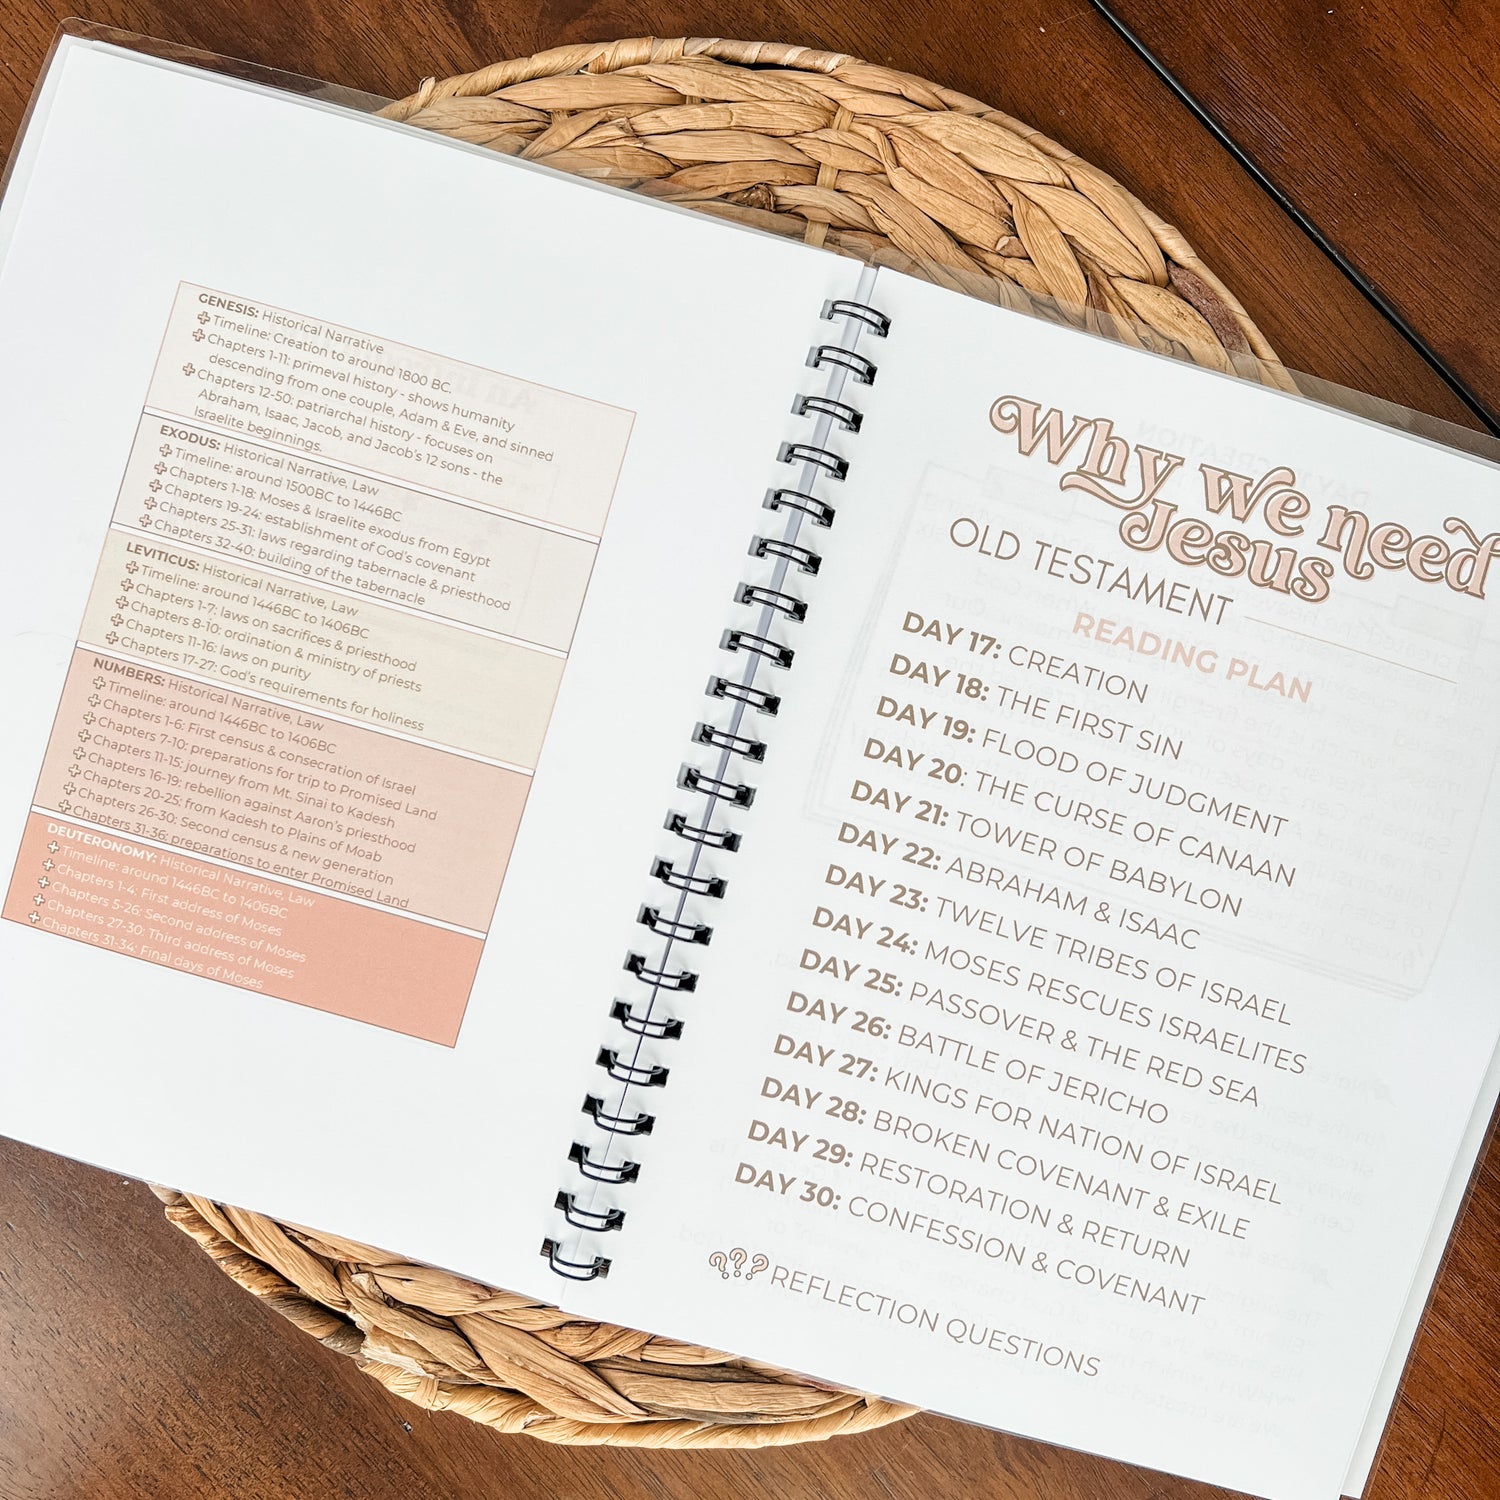 GENESIS: Historical Narrative
Timeline: Creation to around 1800 BC.
Chapters 1-11: primeval history - shows humanity
descending from one couple, Adam & Eve, and sinned
Chapters 12-50: patriarchal history - focuses on
Abraham, Isaac, Jacob, and Jacob's 12 sons - the
Israelite beginnings.
EXODUS: Historical Narrative, Law
Timeline: around 1500BC to 1446BC
Chapters 1-18: Moses & Israelite exodus from Egypt
Chapters 19-24: establishment of God's covenant
Chapters 25-31: laws regarding tabernacle & priesthood
Chapters 32-40: building of the tabernacle
LEVITICUS: Historical Narrative, Law
Timeline: around 1446BC to 1406BC
Chapters 1-7: laws on sacrifices & priesthood
Chapters 8-10: ordination & ministry of priests
Chapters 11-16: laws on purity
Chapters 17-27: God's requirements for holiness
NUMBERS: Historical Narrative, Law
Timeline: around 1446BC to 1406BC
Chapters 1-6: First census & consecration of Israel
Chapters 7-10: preparations for trip to Promised Land
Chapters 11-15: journey from Mt. Sinai to Kadesh
Chapters 16-19: rebellion against Aaron's priesthood
Chapters 20-25: from Kadesh to Plains of Moab
Chapters 26-30: Second census & new generation
Chapters 31-36: preparations to enter Promised Land
DEUTERONOMY: Historical Narrative, Law
Timeline: around 1446BC to 1406BC
Chapters 1-4: First address of Moses
Chapters 5-26: Second address of Moses
Chapters 27-30: Third address of Moses
Chapters 31-34: Final days of Moses
Why we need
Jesus
OLD TESTAMENT
READING PLAN
DAY 17: CREATION
DAY 18: THE FIRST SIN
DAY 19: FLOOD OF JUDGMENT
DAY 20: THE CURSE OF CANAAN
DAY 21: TOWER OF BABYLON
DAY 22: ABRAHAM & ISAAC
DAY 23: TWELVE TRIBES OF ISRAEL
DAY 24: MOSES RESCUES ISRAELITES
DAY 25: PASSOVER & THE RED SEA
DAY 26: BATTLE OF JERICHO
DAY 27: KINGS FOR NATION OF ISRAEL
DAY 28: BROKEN COVENANT & EXILE
DAY 29: RESTORATION & RETURN
DAY 30: CONFESSION & COVENANT
??? REFLECTION QUESTIONS